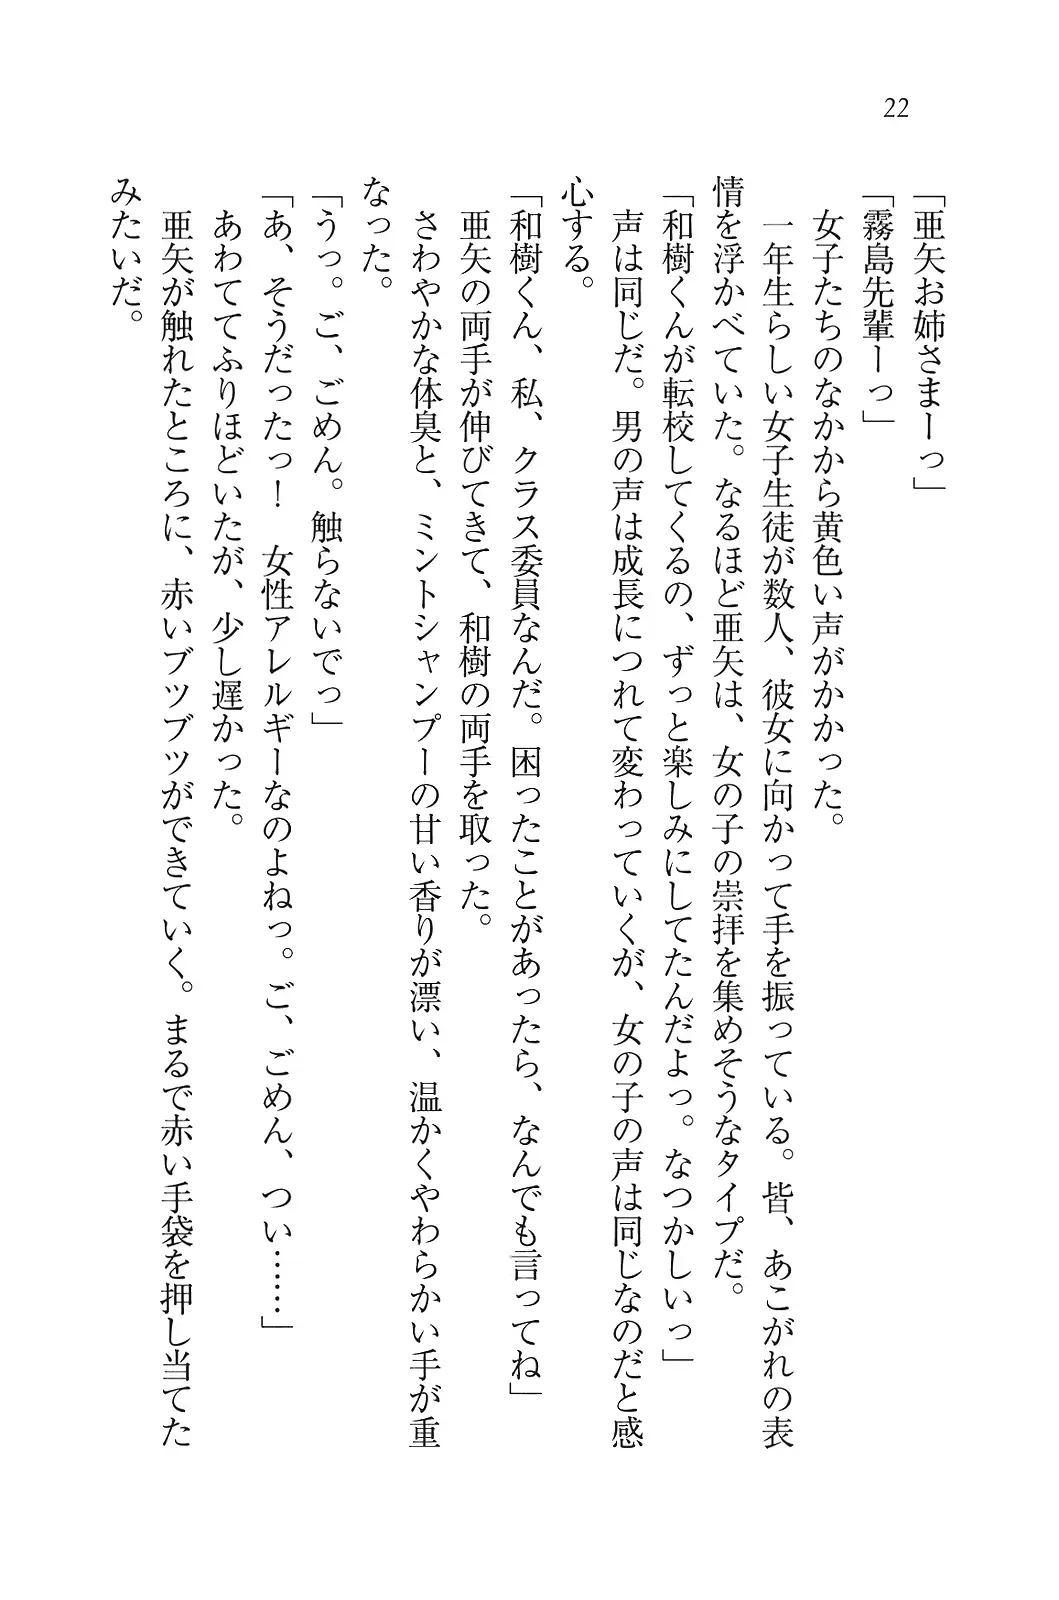 22
「亜矢お姉さまーっ」
「霧島先輩ーっ」
女子たちのなかから黄色い声がかかった。
一年生らしい女子生徒が数人、彼女に向かって手を振っている。皆、あこがれの表
情を浮かべていた。なるほど亜矢は、女の子の崇拝を集めそうなタイプだ。
「和樹くんが転校してくるの、ずっと楽しみにしてたんだよっ。なつかしいっ」
声は同じだ。男の声は成長につれて変わっていくが、女の子の声は同じなのだと感
心する。
「和樹くん、私、クラス委員なんだ。困ったことがあったら、なんでも言ってね」
亜矢の両手が伸びてきて、和樹の両手を取った。
さわやかな体臭と、ミントシャンプーの甘い香りが漂い、温かくやわらかい手が重
なった。
「うっ。ご、ごめん。触らないでっ」
「あ、そうだったっ！　女性アレルギーなのよねっ。ご、ごめん、つい……」
あわててふりほどいたが、少し遅かった。
亜矢が触れたところに、赤いブツブツができていく。まるで赤い手袋を押し当てた
みたいだ。